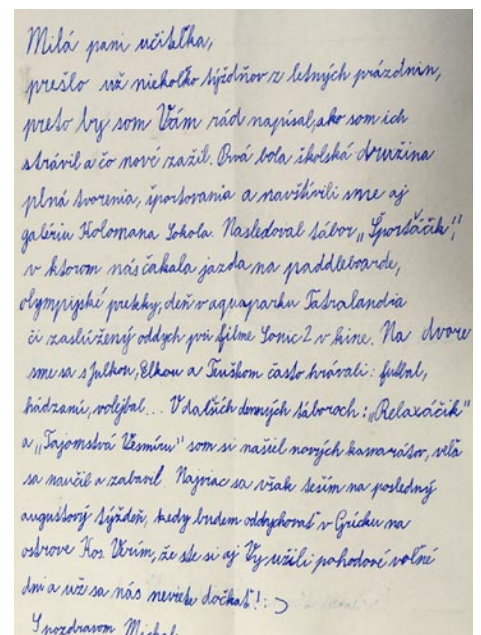 Milá pani učiteľka,
prešlo už niekoľko týždňov z letných prázdnin,
preto by som Vám rád napísal, ako som ich
strávil a čo nové zažil. Prvá bola školská družina
plná tvorenia, športovania a navštívili sme aj
galériu Kolomana Sokola. Nasledoval tábor „Športáčik“,
v ktorom nás čakala jazda na paddleboarde,
olympijské preteky, deň v aquaparku Tatralandia
či zaslúžený oddych pri filme Sonic 2 v kine. Na dvore
sme sa s Julkou, Elkou a Teuškom často hrávali: futbal,
hádzanú, volejbal... V ďalších denných táboroch: „Relaxáčik“
a „Tajomstvá Vesmíru“ som si našiel nových kamarátov, veľa
sa naučil a zabavil. Najviac sa však teším na posledný
augustový týždeň, kedy budem oddychovať v Grécku na
ostrove Kos. Verím, že ste si aj Vy užili pohodové voľné
dni a už sa nás neviete dočkať! :)
S pozdravom Michal